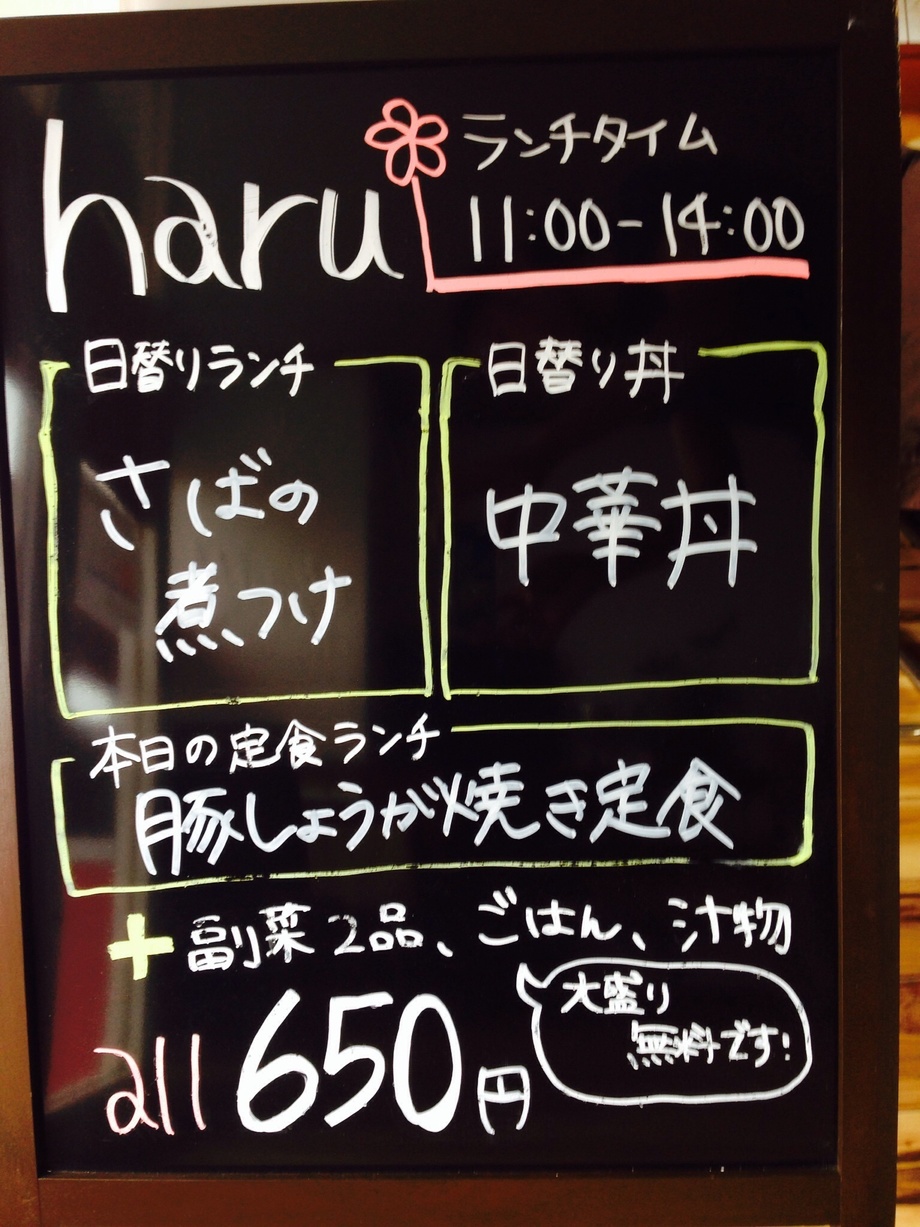 haru
ランチタイム
11:00-14:00
日替りランチ
さばの
煮つけ
日替り丼
中華丼
本日の定食ランチ
豚しょうが焼き定食
+ 副菜2品、ごはん、汁物
all 650円
大盛り
無料です!